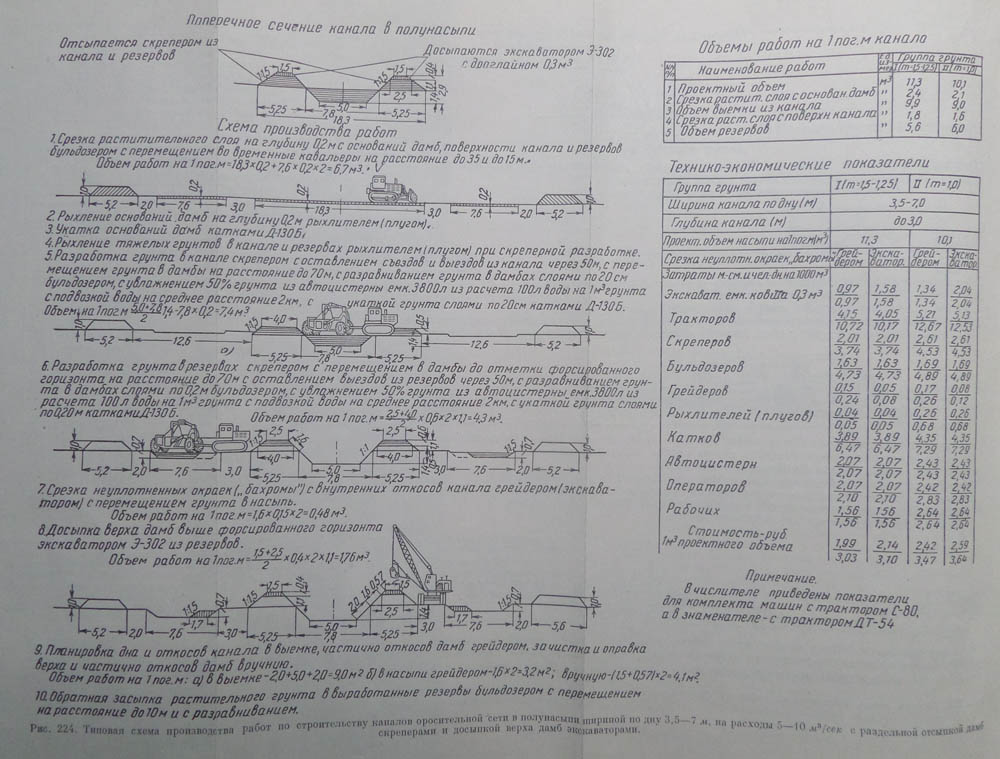 Ппперечное сечение канала в полунасыпи
Отсыпается скрепером из
канала и резервов
Досыпаются экскаватором Э-302
с драглайном 0,3 м³
1:1,5
1,5
1,5
0,4
1,1
1,4
2,9
5,25
5,0
7,8
2,5
5,25
18,3
Схема производства работ
1. Срезка раститительного слоя на глубину 0,2 м с оснований дамб, поверхности канала и резервов
бульдозером с перемещением во временные кавальеры на расстояние до 35 и до 15 м.
Объем работ на 1 пог. м = 18,3×0,2+7,6×0,2×2=6,7 м³.
1,0
5,2
2,0
7,6
3,0
0,2
18,3
0,2
3,0
0,2
7,6
2,0
5,2
1,0
2. Рыхление оснований дамб на глубину 0,2 м рыхлителем (плугом).
3. Укатка оснований дамб катками Д-130Б.
4. Рыхление тяжелых грунтов в канале и резервах рыхлителем (плугом) при скреперной разработке.
5. Разработка грунта в канале скрепером с оставлением съездов и выездов из канала через 50 м, с пере-
мещением грунта в дамбы на расстояние до 70 м, с разравниванием грунта в дамбах слоями по 20 см
бульдозером, с увлажнением 50% грунта из автоцистерны емк. 3800 л из расчета 100 л воды на 1 м³ грунта
с подвозкой воды на среднее расстояние 2 км, с укаткой грунта слоями по 20 см катками Д-130Б.
Объем на 1 пог. м 5,0+7,8/2 · 1,4-7,8×0,2=7,4 м³
1,0
5,2
12,6
1:1,5
4,0
5,25
5,0
7,8
5,25
1,4
12,6
5,2
1,0
6. Разработка грунта в резервах скрепером с перемещением в дамбы до отметки форсированного
горизонта на расстояние до 70 м с оставлением выездов из резервов через 50 м, с разравниванием грун-
та в дамбах слоями по 0,2 м бульдозером, с увлажнением 50% грунта из автоцистерны, емк. 3800 л из
расчета 100 л воды на 1 м³ грунта с подвозкой воды на среднее расстояние 2 км, с укаткой грунта слоями
по 0,20 м катками Д-130Б.
Объем работ на 1 пог. м = 2,5+4,0/2 × 0,6×2×1,1=4,3 м³.
1,0
5,2
2,0
0,7
7,6
3,0
1:1,5
2,5
4,0
5,25
5,0
7,8
1:1
2,5
4,0
5,25
3,0
7,6
1:1,5
0,7
2,0
5,2
1,0
7. Срезка неуплотненных окраек („бахромы") с внутренних откосов канала грейдером (экскава-
тором) с перемещением грунта в насыпь.
Объем работ на 1 пог. м = 1,6×0,15×2=0,48 м³.
8. Досыпка верха дамб выше форсированного горизонта
экскаватором Э-302 из резервов.
Объем работ на 1 пог. м = 1,5+2,5/2 × 0,4×2×1,1=1,76 м³.
1,0
5,2
2,0
1:1,5
1,7
7,6
0,7
3,0
1:1,5
2,5
0,4
1,1
5,25
5,0
7,8
2,0
1,6
0,57
1,5
2,5
5,25
1,4
3,0
1,7
7,6
1:1,5
0,7
2,0
5,6
1,0
9. Планировка дна и откосов канала в выемке, частично откосов дамб грейдером, зачистка и оправка
верха и частично откосов дамб вручную.
Объем работ на 1 пог. м: а) в выемке-2,0+5,0+2,0=9,0 м² б) в насыпи грейдером-1,6×2=3,2 м²; вручную-(1,5+0,57)×2=4,1 м².
10. Обратная засыпка растительного грунта в выработанные резервы бульдозером с перемещением
на расстояние до 10 м и с разравниванием.
Объемы работ на 1 пог. м канала
NN пп Наименование работ Группа грунта
I (m=1,5-1,25) II (m=1,0)
1 Проектный объем м³ 11,3 10,1
2 Срезка растит. слоя с основан. дамб " 2,4 2,1
3 Объем выемки из канала " 9,9 9,0
4 Срезка раст. слоя с поверхн. канала " 1,8 1,6
5 Объем резервов " 5,6 6,0
Технико-экономические показатели
Группа грунта I (m=1,5-1,25) II (m=1,0)
Ширина канала по дну (м) 3,5-7,0
Глубина канала (м) до 3,0
Проект. объем насыпи на 1 пог. м (м³) 11,3 10,1
Срезка неуплотн. окраек, бахромы Грей-дером Экска-ватор. Грей-дером Экска-ватор.
Затраты м-см. и чел.-дн. на 1000 м³
Экскават. емк. ковша 0,3 м³ 0,97 1,58 1,34 2,04
0,97 1,58 1,34 2,04
Тракторов 4,15 4,05 5,21 5,13
10,72 10,17 12,67 12,53
Скреперов 2,01 2,01 2,61 2,61
3,74 3,74 4,53 4,53
Бульдозеров 1,63 1,63 1,69 1,69
4,73 4,73 4,89 4,89
Грейдеров 0,15 0,05 0,17 0,08
0,24 0,08 0,26 0,12
Рыхлителей (плугов) 0,04 0,04 0,26 0,26
0,05 0,05 0,68 0,68
Катков 3,89 3,89 4,35 4,35
6,47 6,47 7,29 7,29
Автоцистерн 2,07 2,07 2,43 2,43
2,07 2,07 2,43 2,43
Операторов 2,07 2,07 2,42 2,42
2,10 2,10 2,83 2,83
Рабочих 1,56 1,56 2,64 2,64
1,56 1,56 2,64 2,64
Стоимость-руб.
1 м³ проектного объема 1,99 2,14 2,42 2,59
3,03 3,10 3,47 3,64
Примечание.
В числителе приведены показатели
для комплекта машин с трактором С-80,
а в знаменателе- с трактором ДТ-54
Рис. 224. Типовая схема производства работ по строительству каналов оросительной сети в полунасыпи шириной по дну 3,5—7 м, на расходы 5—10 м³/сек с раздельной отсыпкой дамб
скреперами и досыпкой верха дамб экскаваторами.